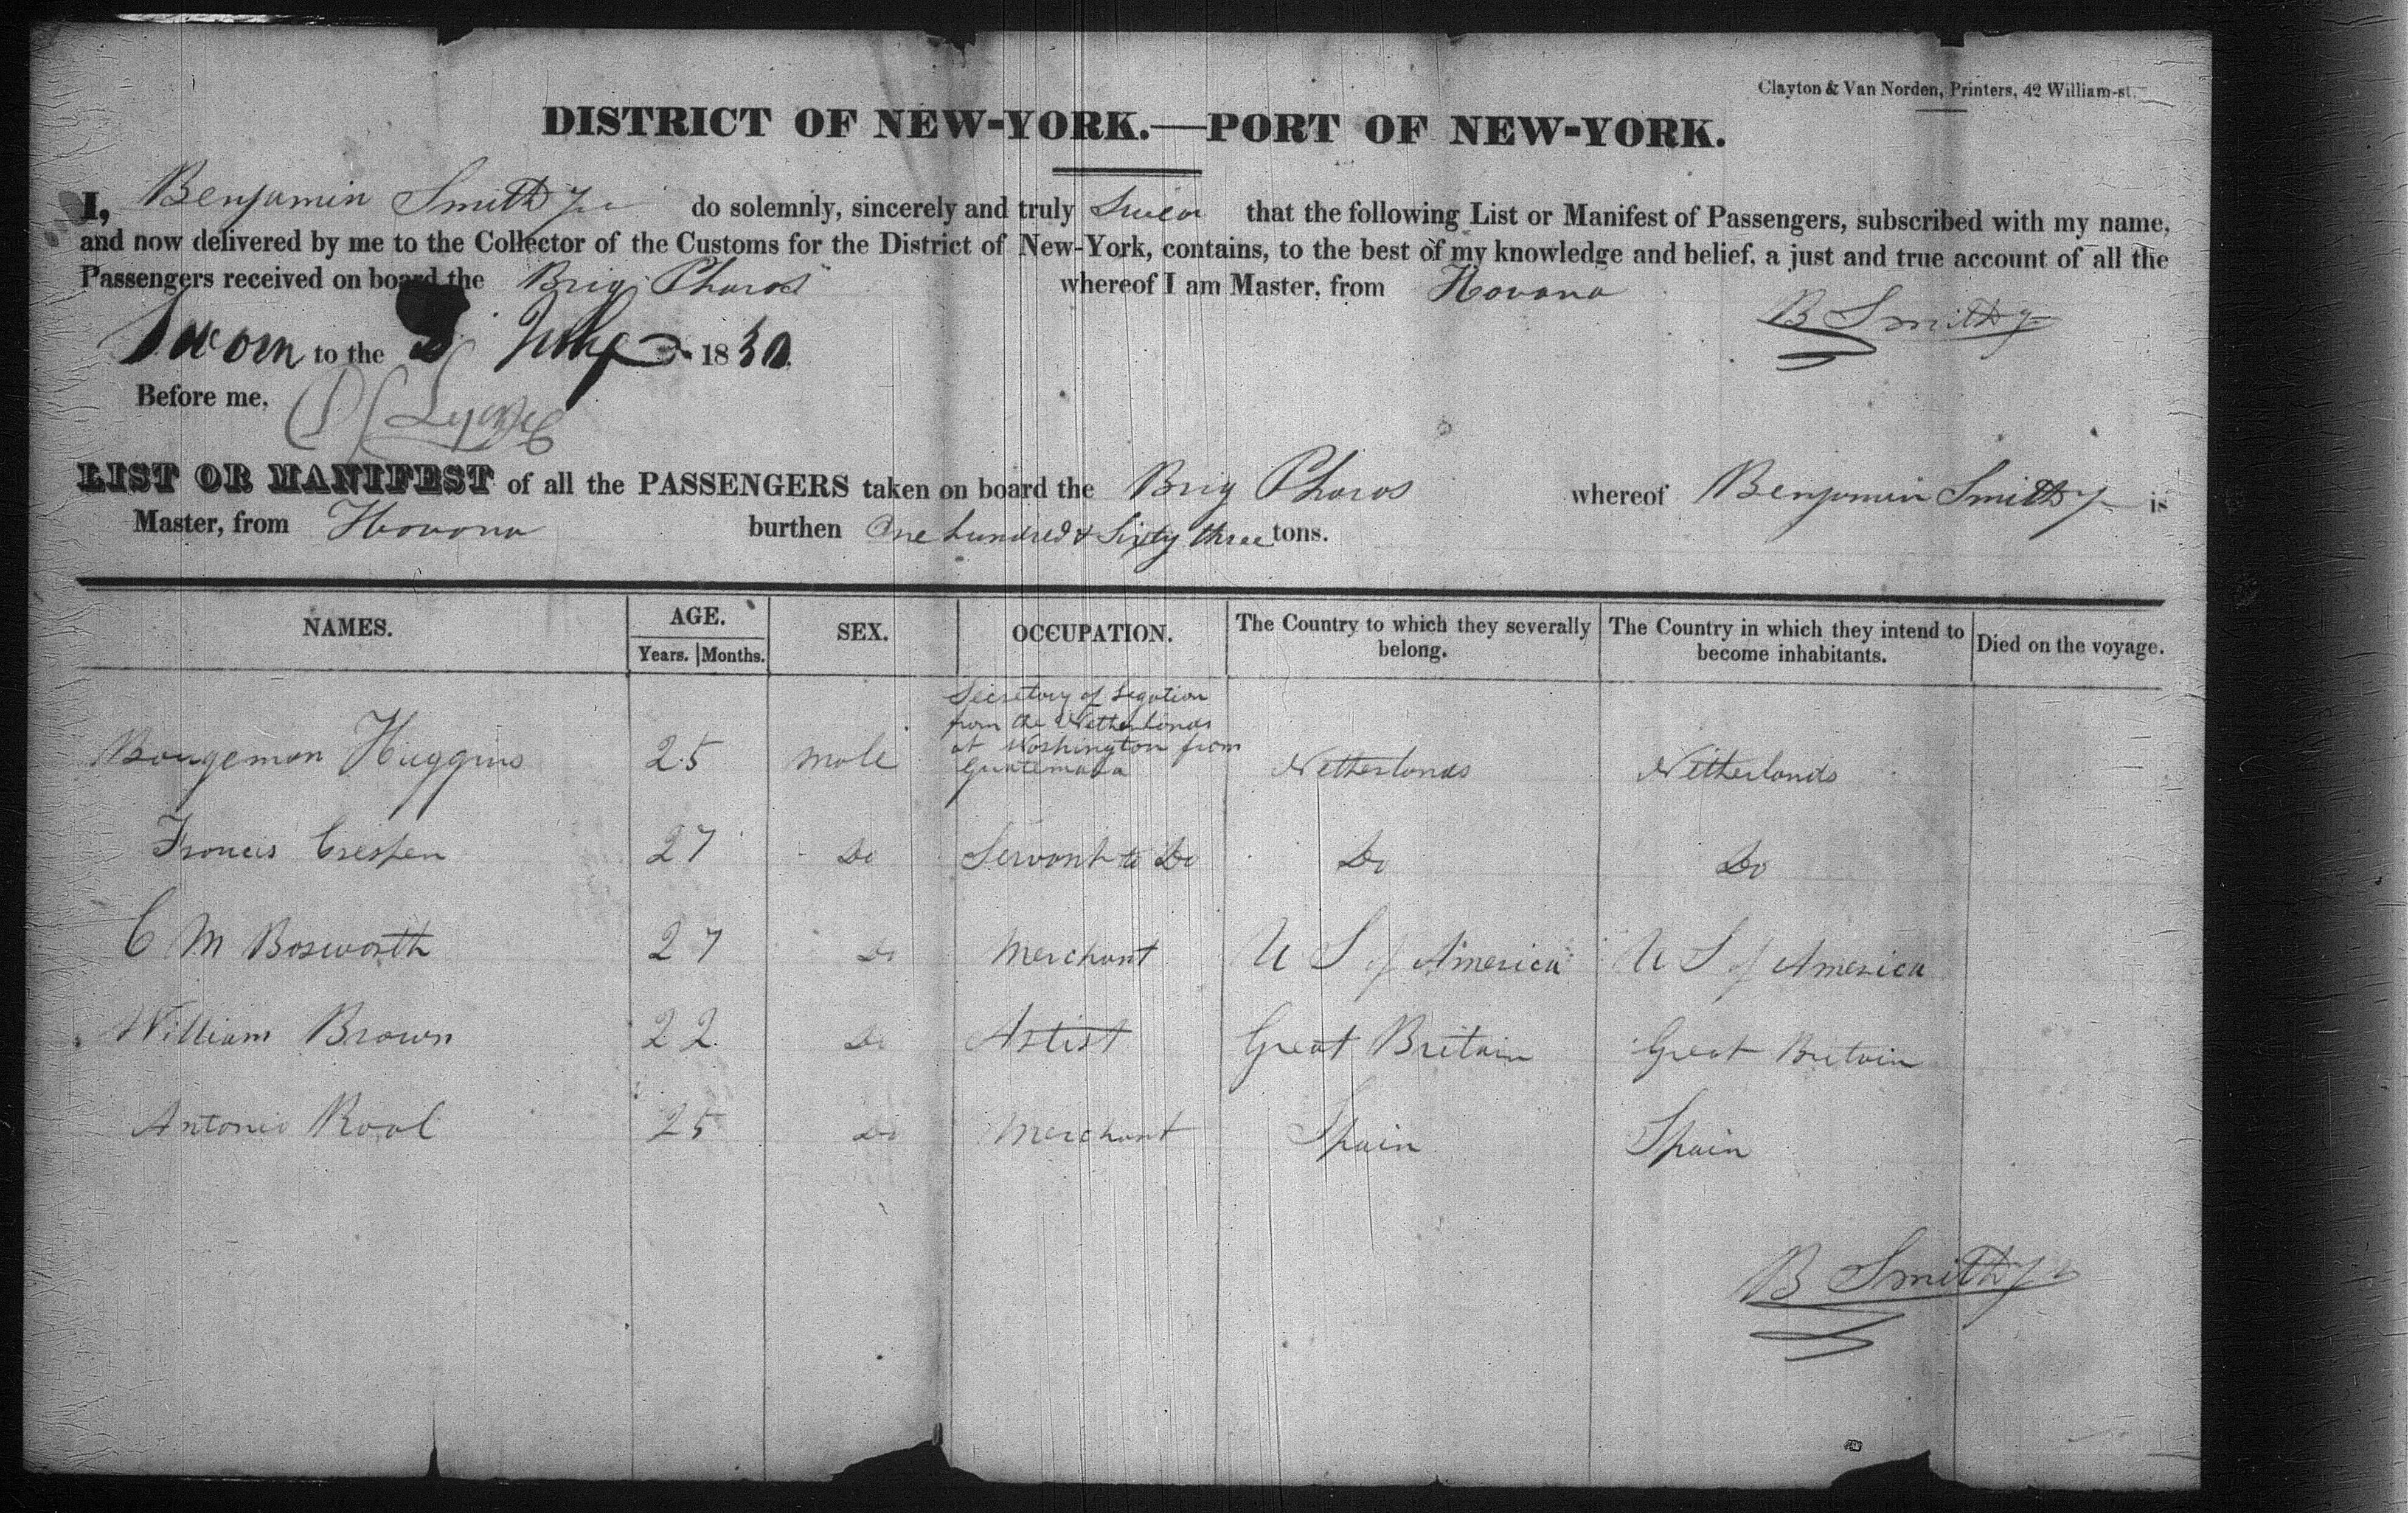 Clayton & Van Norden, Printers, 42 William-st.
DISTRICT OF NEW-YORK.—PORT OF NEW-YORK.
I, Benjamin Smith Jr do solemnly, sincerely and truly Swear that the following List or Manifest of Passengers, subscribed with my name,
and now delivered by me to the Collector of the Customs for the District of New-York, contains, to the best of my knowledge and belief, a just and true account of all the
Passengers received on board the Brig Pharos whereof I am Master, from Havana
B Smith Jr
Sworn to the July 1830
Before me,
LIST OR MANIFEST of all the PASSENGERS taken on board the Brig Pharos whereof Benjamin Smith Jr is
Master, from Havana burthen One hundred & Sixty three tons.
NAMES. AGE. SEX. OCCUPATION. The Country to which they severally belong. The Country in which they intend to become inhabitants. Died on the voyage.
Years. Months.
Secretary of Legation
from the Netherlands
at Washington from
Guatemala
Bougemon Huggins 25 male Netherlands Netherlands
Francis Crespen 27 Do Servant to Do Do Do
C M Bosworth 27 Do Merchant U S of America U S of America
William Brown 22 Do Artist Great Britain Great Britain
Antonio Roal 25 Do Merchant Spain Spain
B Smith Jr